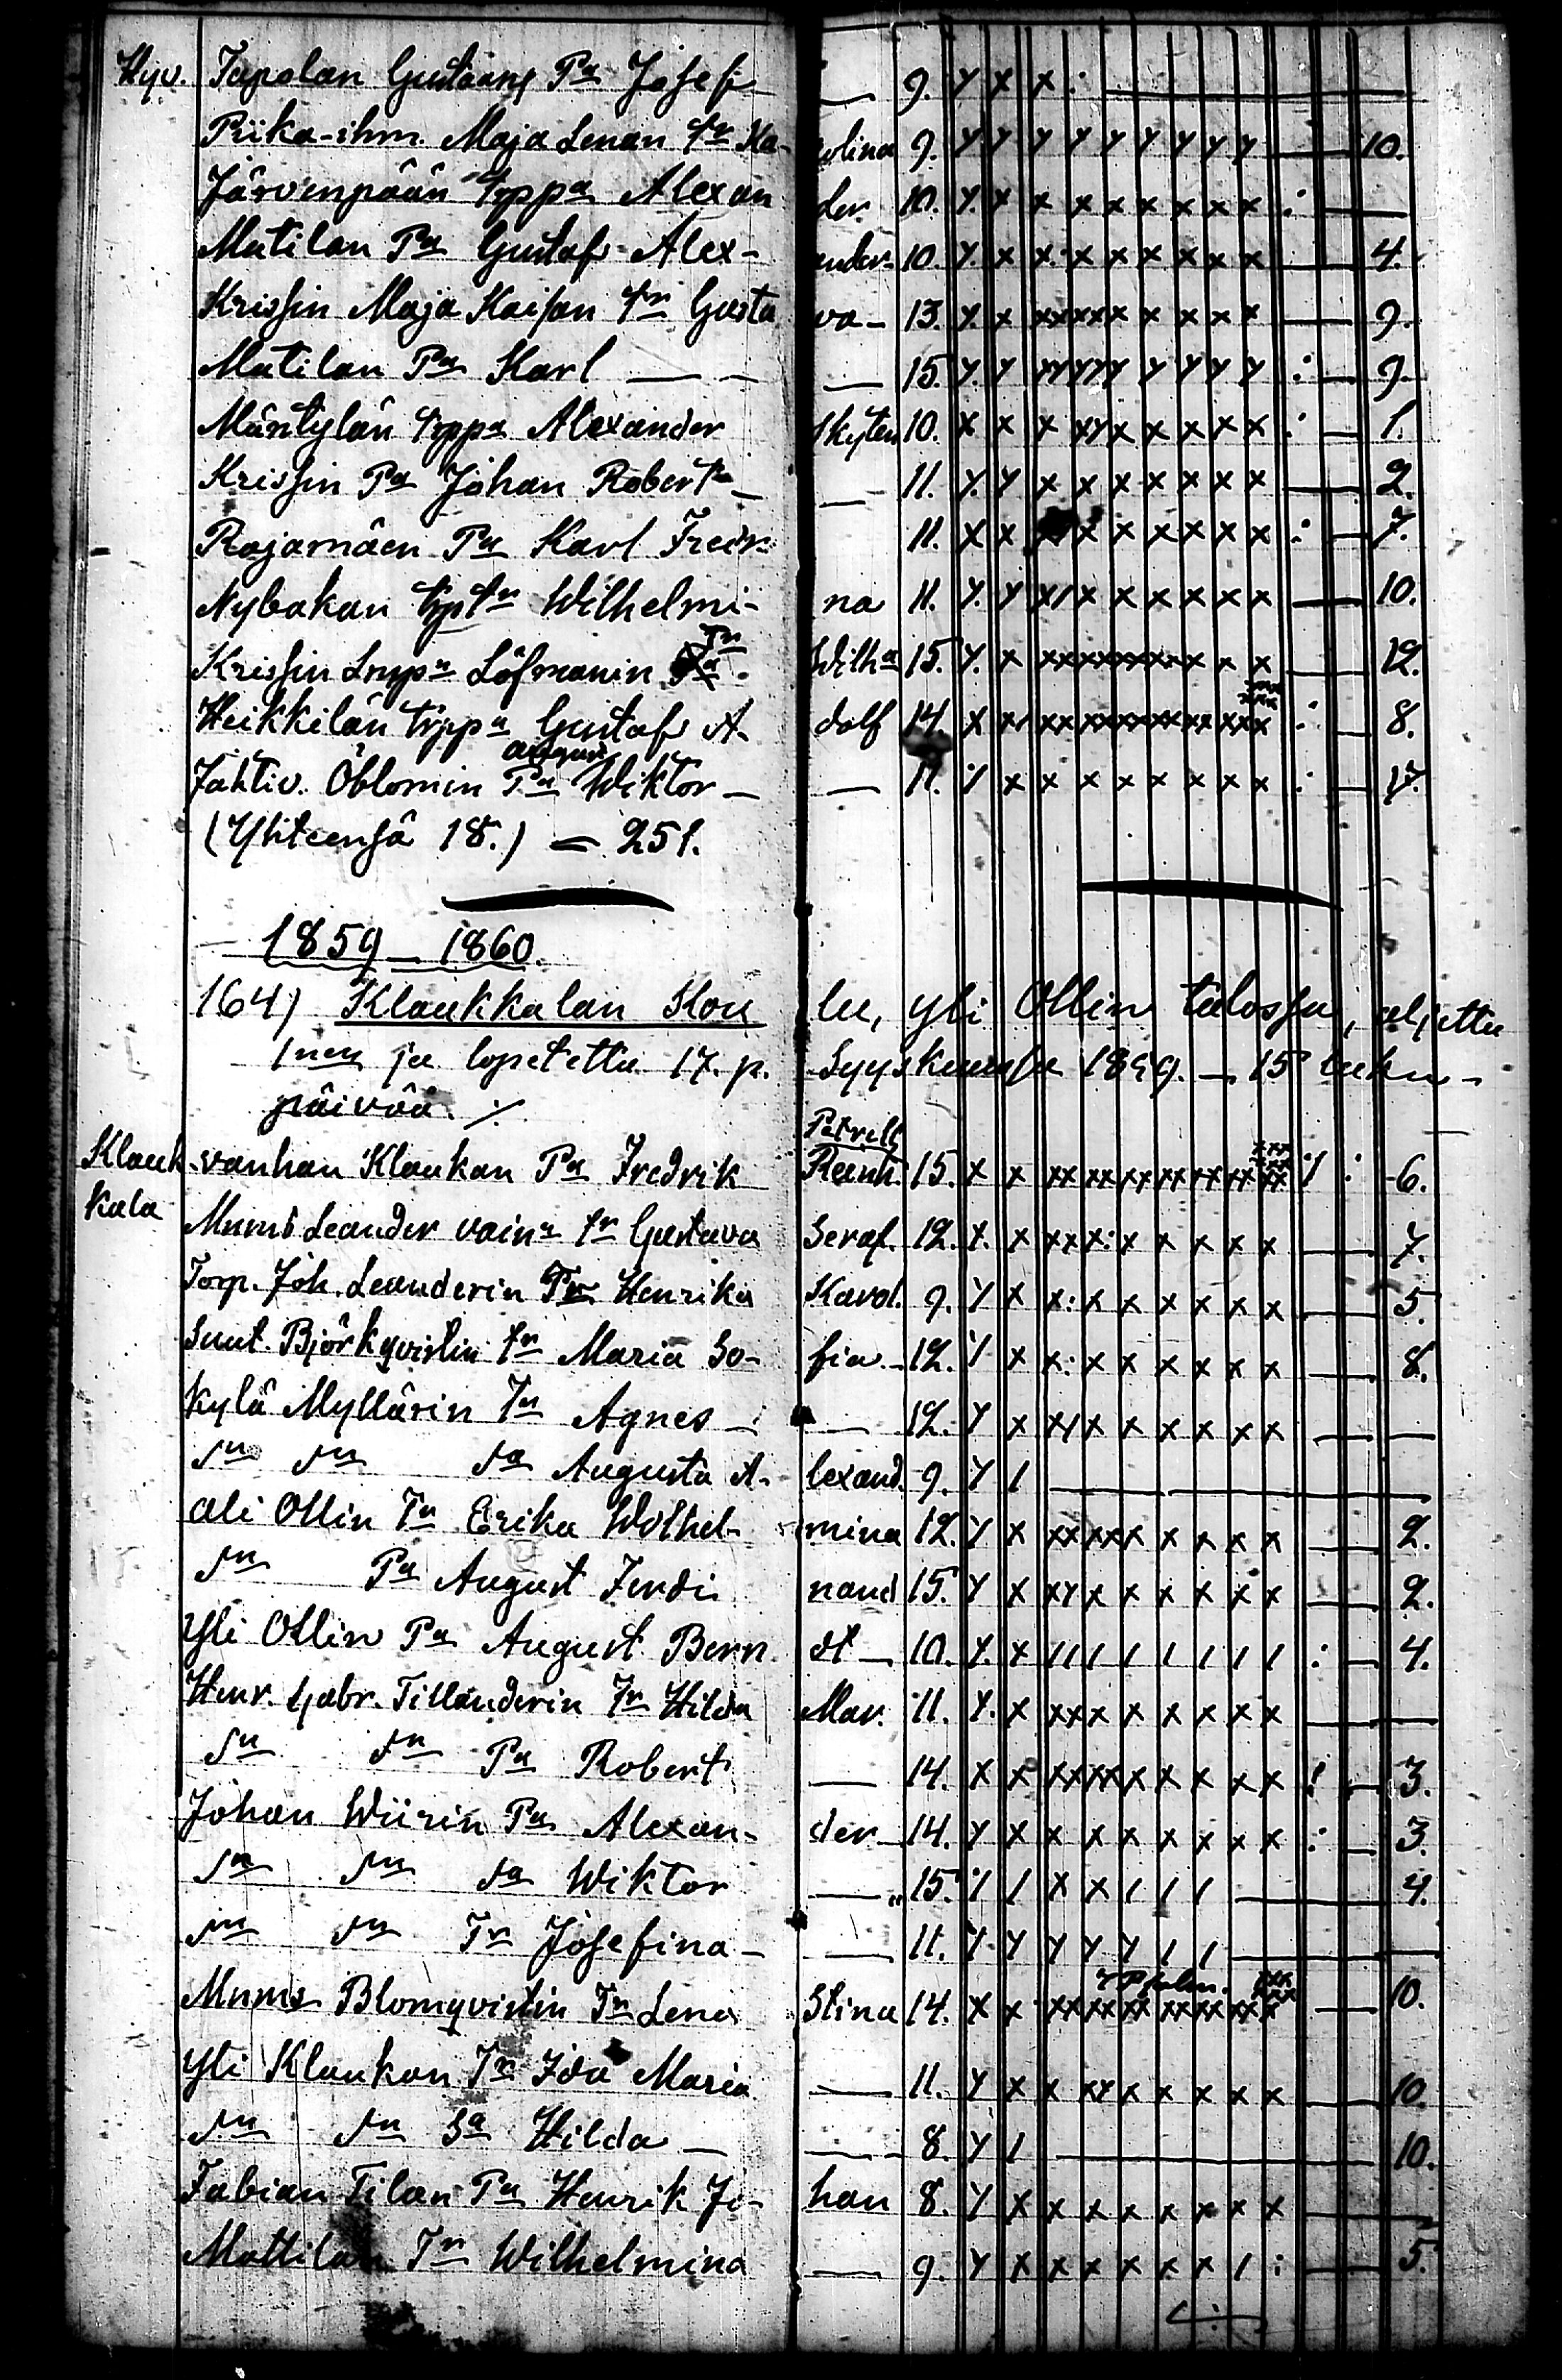 Hyv. Tapolan Gustaans Pa Josef — 9. y x x : —
Piika-ihm. Maja Lenan Tr Ka- rolina 9. y y y y y y y y y — 10.
Järvenpään trppa Alexan der 10. y. x x x x x x x x : —
Matilan Pa Gustaf Alex- ander- 10. y. x x x x x x x x — 4.
Krissin Maja Kaisan Tr Gusta va- 13. y. x xxxxx x x x x — 9.
Matilan Pa Karl — — — 15. y. y yyyyy y y y y : — 9.
Mäntylän trppa Alexander Skyten 10. x x x xyx x x x x : — 1.
Krissin Pa Johan Robert — — 11. y. y x x x x x x x — 2.
Rajamäen Pa Karl Fredr. 11. x x x x x x x x : — 7.
Nybakan trp Tr Wilhelmi- na 11. y. y x/ x x x x x x — 10.
Krissin Löfmanin Tr Wilha 15. y. x xxxxxxxx x x x — 12.
Heikkilän trppa Gustaf A- dolf 14. x x xx xxxxxxxx xxx : 8.
Jahtiv. Öblomin Pa August Wiktor — — 11. / x x x x x x x x : — 17.
(Yhteensä 18.) = 251.
1859 — 1860.
164) Klaukkalan Kou lu, yli Ollin talossa, aljettu
1nen ja lopetettu 17. p. Syyskuussa 1859. — 15 luku-
päivää. ·/·
Klauk- kala vanhan Klaukan Pa Fredrik Petrell Reinh. 15. x x xx xx xx xx xx xx xx / : 6.
Mums Leander vaina Tr Gustava Seraf. 12. x. x xxx: x x x x x — 7.
Torp. Joh. Leanderin Tr Henrika Karol. 9. y x x: x x x x x x — 5.
Sunt. Björkqvistin Tr Maria So- fia — 12. y x x: x x x x x x — 8.
Kylä Myllärin Tr Agnes — — 12. y x xy x x x x x x — —
sn sn sa Augusta A- lexand. 9. y / —
ali Ollin Tr Erika Wilhel- mina 12. y x xx xxx x x x x — 2.
sn Pa August Ferdi nand 15. y x xyx x x x x x — 2.
Yli Ollin Pa August Bern dt — 10. y. x /// / / / / / : — 4.
Henr. Gabr. Tillanderin Tr Hilda Mar. 11. y. x xxx x x x x x — —
sn sn Pa Robert — 14. x x xxxxx x x x x : — 3.
Johan Wiirin Pa Alexan- der — 14. y x x x x x x x x : — 3.
sn sn sa Wiktor — 15. / / x x / / / — 4.
sn sn Tr Josefina — — 11. y y y y y / / — —
Mums Blomqvistin Tr Lena Stina 14. x x xx xx xx xx xx xx — 10.
Yli Klaukan Tr Ida Maria — 11. y x x xyx x x x x — 10.
sn sn Sa Hilda — — 8. y / — 10.
Fabian Tilan Pa Henrik Jo- han 8. y x x x x x x x x —
Mattilan Tr Wilhelmina — 9. y x x x x x x / : — 5.